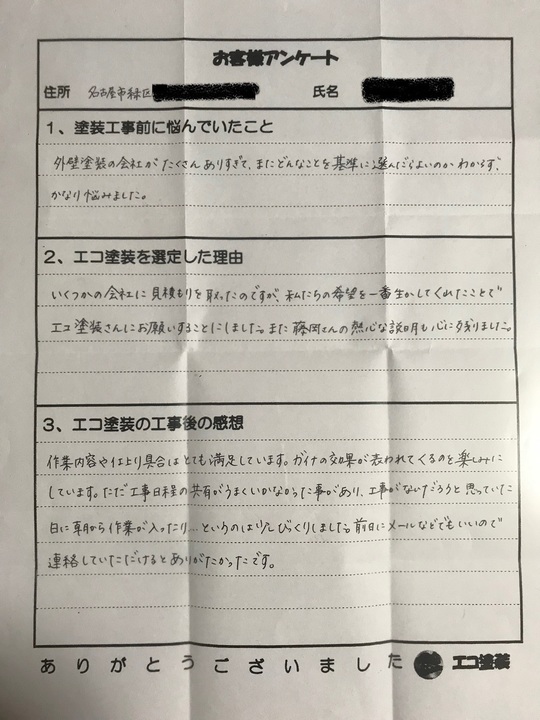 お客様アンケート
住所 名古屋市緑区 氏名
1、塗装工事前に悩んでいたこと
外壁塗装の会社がたくさんありすぎて、またどんなことを基準に選んだらよいのかわからず、
かなり悩みました。
2、エコ塗装を選定した理由
いくつかの会社に見積もりを取ったのですが、私たちの希望を一番生かしてくれたことで
エコ塗装さんにお願いすることにしました。また藤岡さんの熱心な説明も心に残りました。
3、エコ塗装の工事後の感想
作業内容や仕上り具合はとても満足しています。ガイナの効果が表われてくるのを楽しみに
しています。ただ工事日程の共有がうまくいかなかった事があり、工事がないだろうと思っていた
日に朝から作業が入ったり…というのは少しびっくりしました。前日にメールなどでもいいので
連絡していただけるとありがたかったです。
ありがとうございました エコ塗装